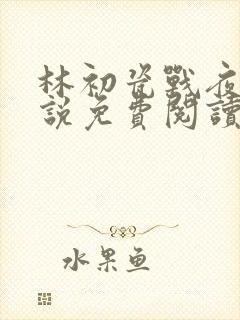 林初瓷戰夜
說免費閱讀
水果鱼